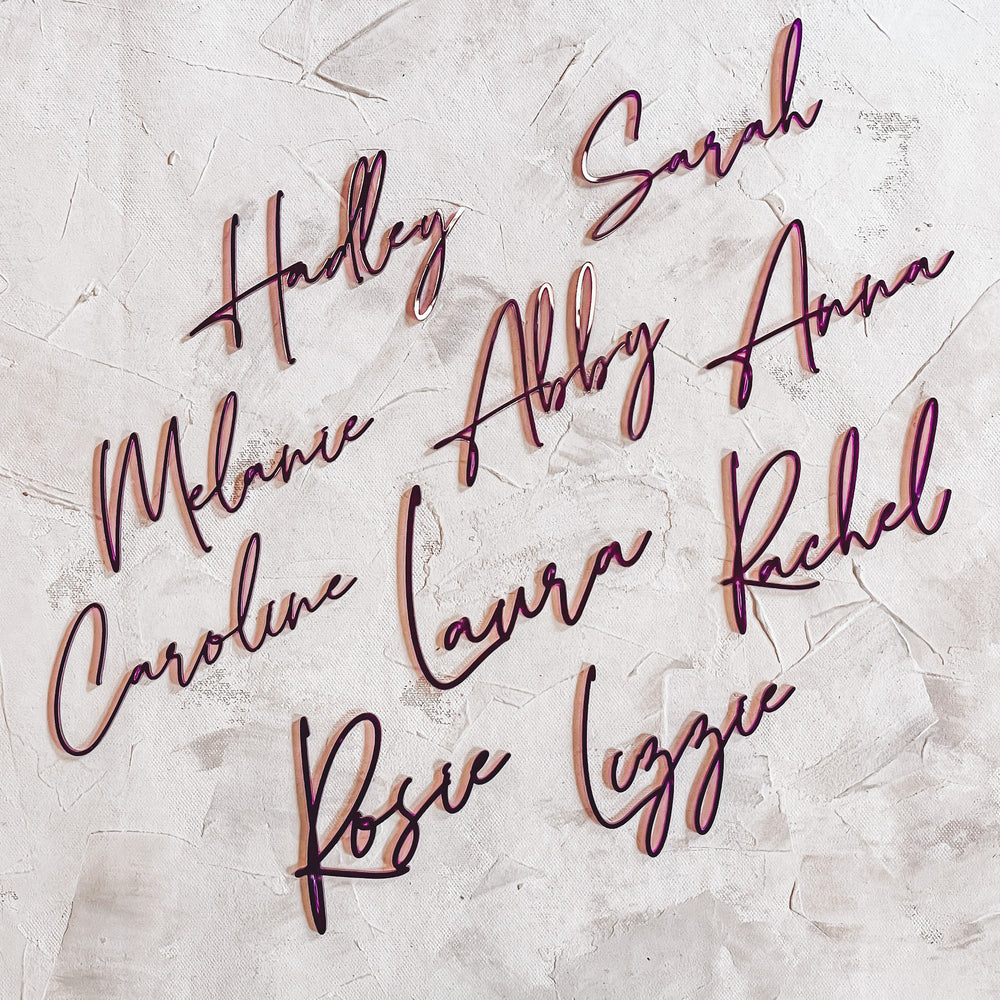 Sarah
Hadley
Abby
Anna
Melanie
Laura
Rachel
Caroline
Rosie
Lizzie